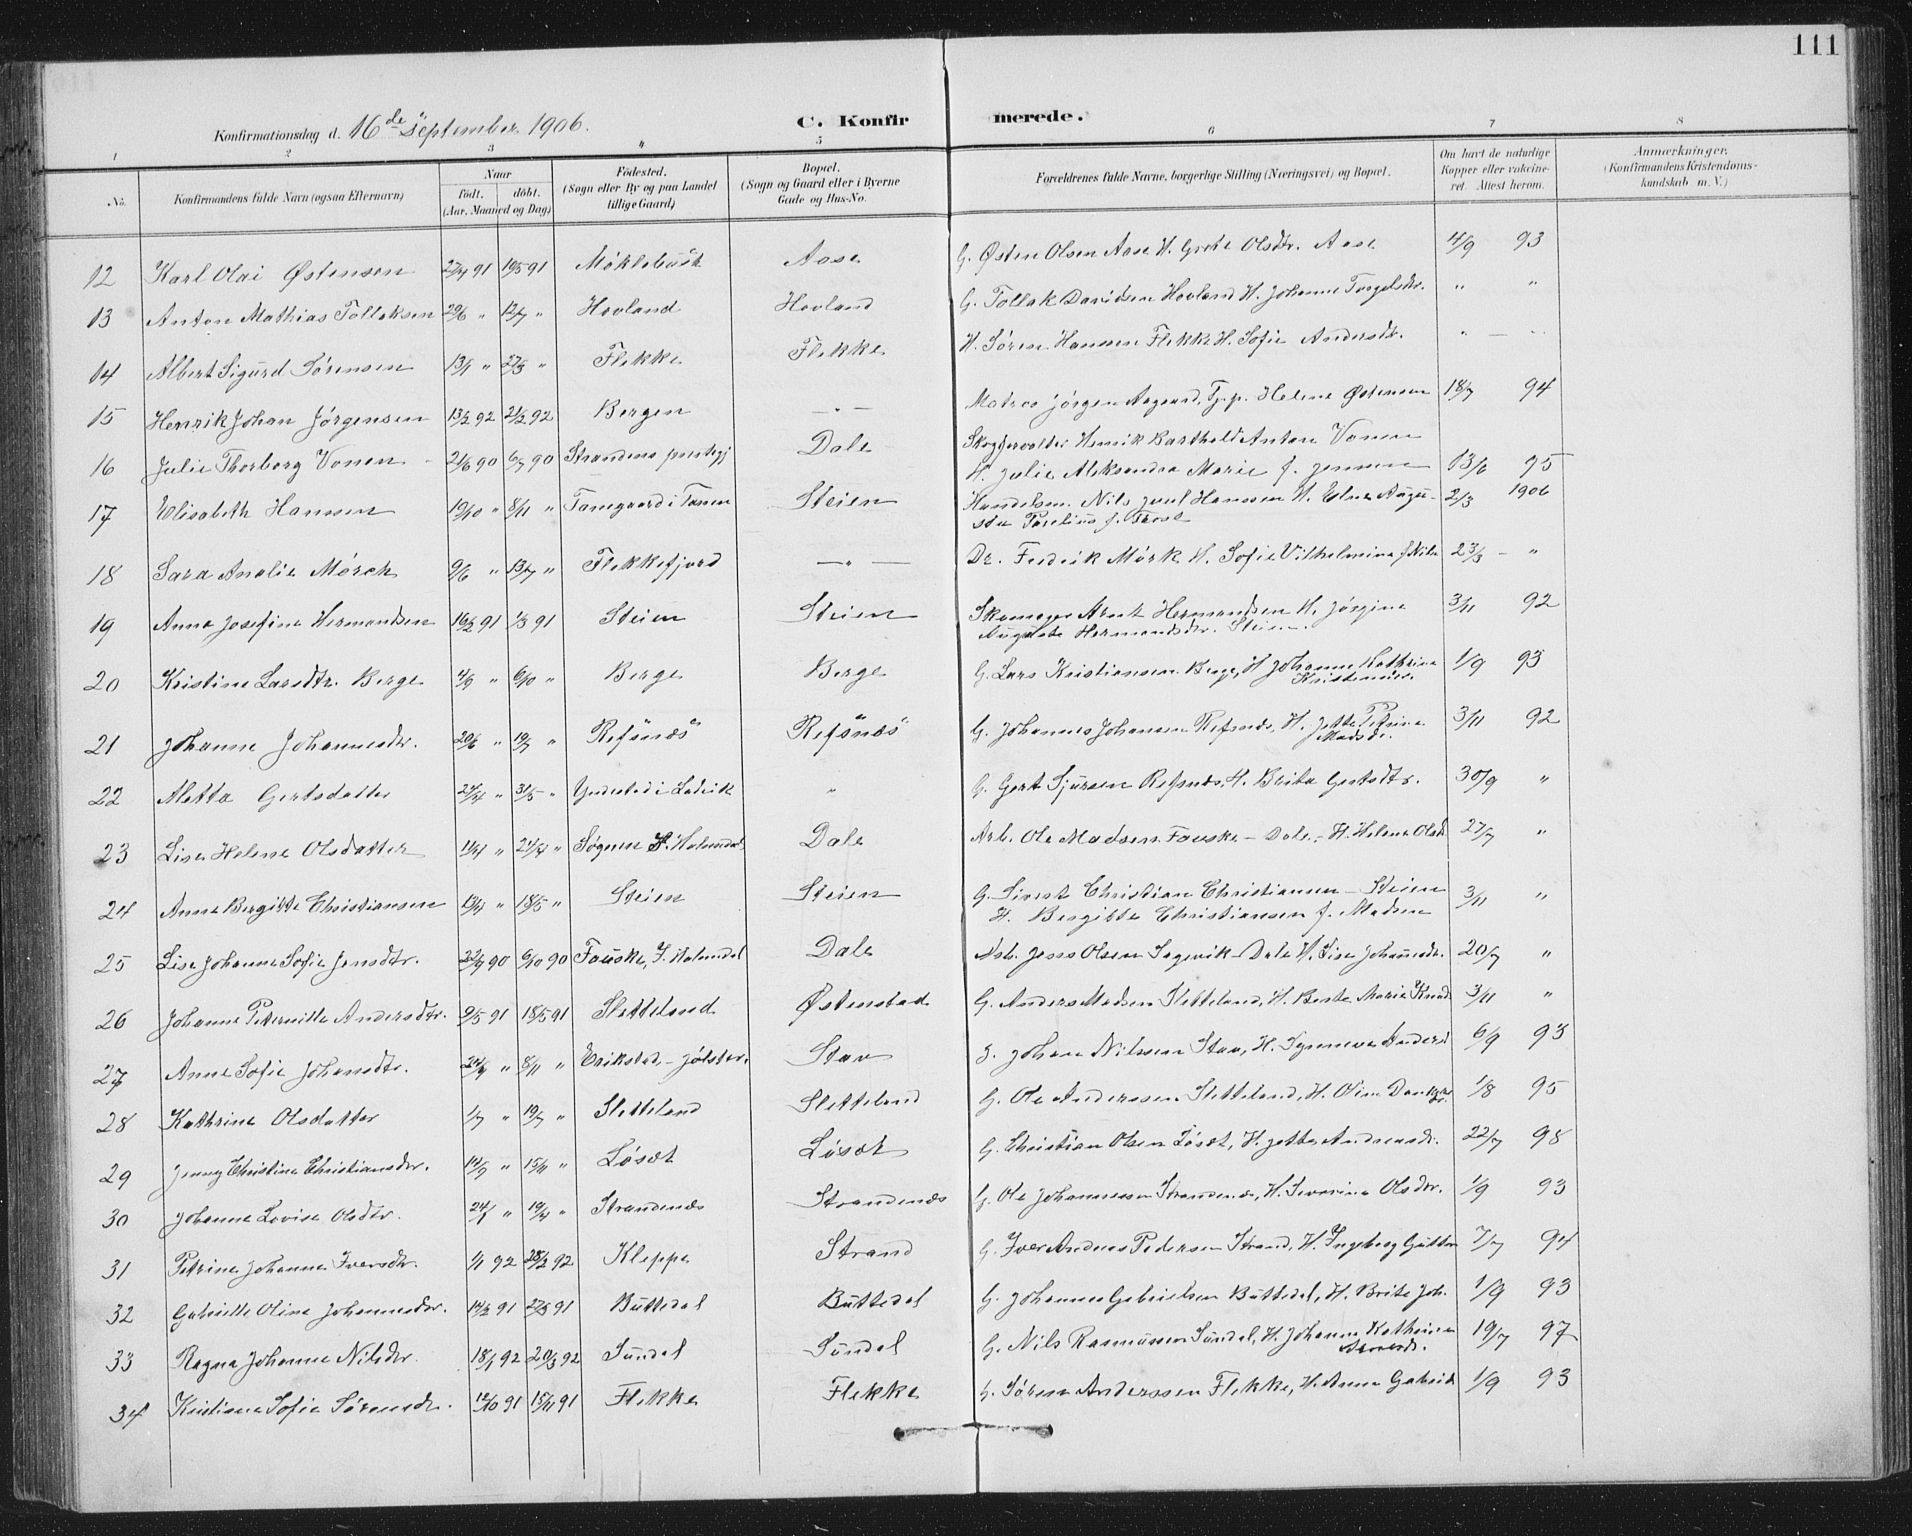 111
Konfirmationsdag d. 16de September 1906.
C. Konfirmerede.
1 2 3 4 5 6 7 8
No. Konfirmandens fulde Navn (ogsaa Efternavn) Naar født. døbt. (Aar, Maaned og Dag) Fødested. (Sogn eller By og paa Landet tillige Gaard) Bopæl. (Sogn og Gaard eller i Byerne Gade og Hus-No. Forældrenes fulde Navne, borgerlige Stilling (Næringsvei) og Bopæl. Om havt de naturlige Kopper eller vakcineret. Attest herom. Anmærkninger. (Konfirmandens Kristendomskundskab m. V.)
12 Karl Olai Østensen 27/4 91 19/5 91 Møklebust Aase G. Østen Olsen Aase H. Grete Olsdtr. Aase 4/9 93
13 Anton Mathias Tollaksen 29/6 " 12/7 " Hovland Hovland G. Tollak Davidsen Hovland H. Johanne Torgelsdr. " "
14 Albert Sigurd Sørensen 13/1 " 27/3 " Flekke Flekke H. Søren Hansen Flekke H. Sofie Andersdr. " — "
15 Henrik Johan Jørgensen 13/2 92 21/2 92 Bergen — " — Matros Jørgen Aagaard, Tj.p. Helene Østensen 18/7 94
16 Julie Thorborg Vonen 21/6 90 6/7 90 Strandens prestegj Dale Skogforvalter Henrik Barthold Anton Vonen
H. Julie Aleksandra Marie f. Jensen 13/6 95
17 Elisabeth Hansen 19/10 " 8/11 " Tanegaard i Tanen Steien Handelsm. Nils Juul Hanssen H. Edne Augu- 2/3 1906
sta Parelius f. Frost
18 Sara Analie Mörch 9/6 " 13/7 " Flekkefjord — " — Dr. Fredrik Mörk H. Sofie Vilhelmine f. Nils 23/3 — "
19 Anna Josefine Hermandsen 16/2 91 1/3 91 Steien Steien Skomager Arnt Hermandsen H. Jørgine 3/11 92
Auguste Hermandsdr. Steien
20 Kristine Larsdtr. Berge 4/9 " 6/10 " Berge Berge G. Lars Kristiansen Berge, H Johanne Kathrine 1/9 93
21 Johanne Johannesdr. 20/6 " 19/7 " Refsnæs Refsnæs G. Johannes Johansen Refsnæs, H. Jette Petrine 3/11 92
Madsdr.
22 Metta Gertsdatter 24/4 " 31/5 " Yndestad i Ladvik " G. Gert Sjursen Refsnæs, H. Brita Gertsdtr. 30/9 "
23 Lise Helene Olsdatter 11/4 " 21/4 " Søgnen I. Holmedal Dale Arb. Ole Madsen Fauske – Dale – H. Helene Olsd 27/7 "
24 Anne Bergitte Christiansen 13/4 " 18/5 " Steien Steien G. Sivert Christian Christiansen – Steien 3/11 "
H. Bergitte Christiansen f. Madsen
25 Lise Johanne Sofie Jensdtr. 22/9 90 6/10 90 Fauske, I. Holmedal Dale Arb. Jens Olsen Sagevik – Dale H. Lise Johannesdr. 20/7 "
26 Johanne Peternille Andersdtr. 9/5 91 18/5 91 Sletteland Østenstad G. Anders Madsen Sletteland, H. Berte Marie Knud 3/11 "
27 Anne Sofie Johansdtr. 24/9 " 8/11 " Erikstad – Jølster. Stav G. Johan Nilssen Stav, H. Synneva Andersd 6/9 93
28 Kathrine Olsdatter 1/7 " 19/7 " Sletteland Sletteland G. Ole Anderssen Sletteland, H. Oline 1/8 95
29 Jenny Christine Christiansdr. 14/9 " 15/11 " Løsæt Løsæt G. Christian Olsen Løsæt, H. Jette Andreasdr. 22/7 98
30 Johanne Lovise Olsdtr. 24/1 " 19/4 " Strandenæs Strandenæs G. Ole Johannessen Strandenæs, H. Severine Olsdtr. 1/9 93
31 Petrine Johanne Iversdtr. 1/1 92 28/2 92 Kleppe Strand G. Iver Andreas Pedersen Strand, H. Ingeborg Guttor 7/7 94
32 Gabrielle Oline Johannesdr. 14/2 91 27/3 91 Buttedal Buttedal G. Johannes Gabrielsen Buttedal, H. Brite Joh. 1/9 93
33 Ragna Johanne Nilsdr. 18/1 92 20/3 92 Sundal Sundal G. Nils Rasmussen Sundal, H. Johanne Kathrine 19/7 97
34 Kristiane Sofie Sørensdr. 12/10 91 15/11 91 Flekke Flekke G. Søren Anderssen Flekke, H. Anne Gabriels 1/9 93